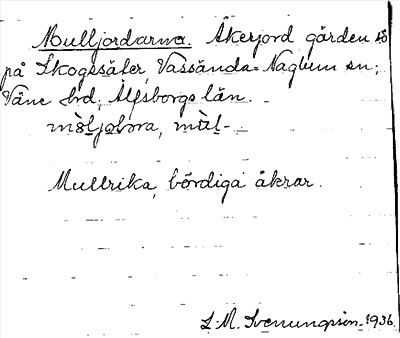 Mulljordarna. Åkerjord gården
på Skogssäter, Vassända=Naglum sn;
Väne hd, Älfsborgs län.
Mullrika, bördiga åkrar.
1936.